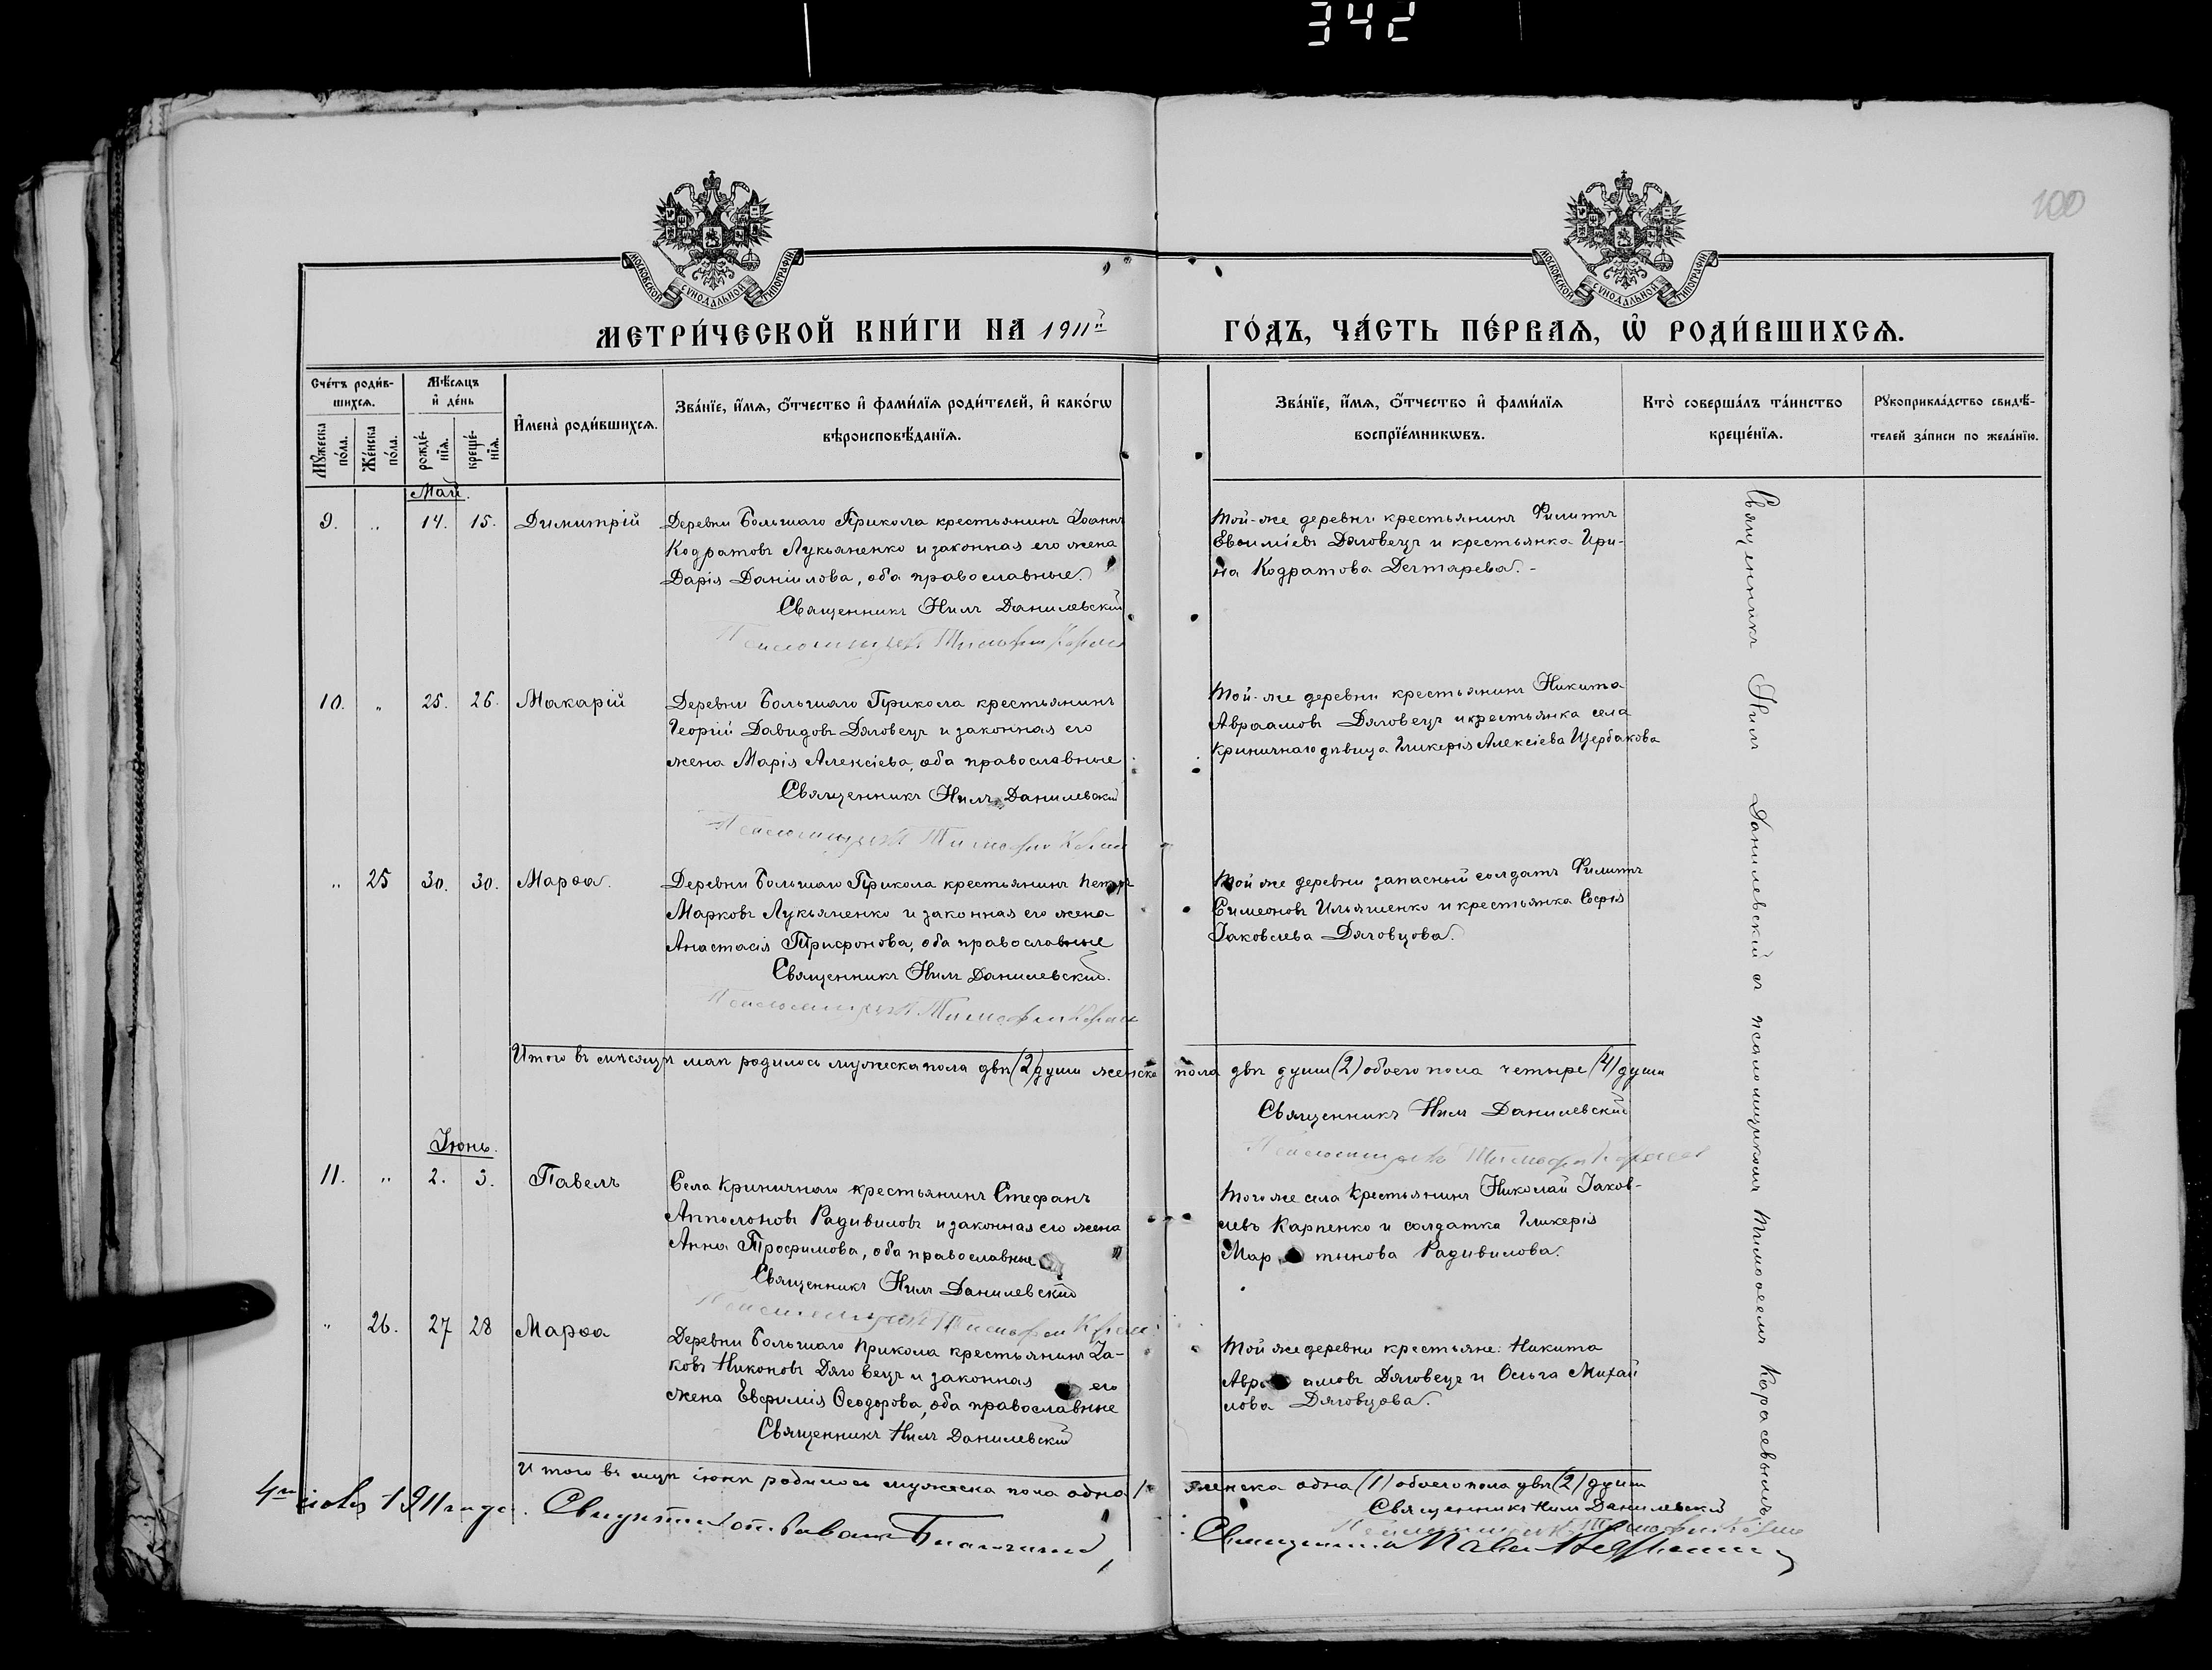 342
100
МОСКОВСКОЙ СѴНОДАЛЬНОЙ ТИПОГРАФІИ
МОСКОВСКОЙ СѴНОДАЛЬНОЙ ТИПОГРАФІИ
МЕТРИ́ЧЕСКОЙ КНИ́ГИ НА 1911й
ГО́ДЪ, ЧА́СТЬ ПЕ́РВАѦ, Ѡ҆ РОДИ́ВШИХСѦ.
Сче́тъ роди́в-
шихсѧ.
Мѣ́сѧцъ
и҆ де́нь
Мꙋ́жеска по́ла.
Же́нска по́ла.
рожде́-нїѧ.
креще́-нїѧ.
И҆мена̀ роди́вшихсѧ.
Зва́нїе, и҆́мѧ, ѻ҆́тчество и҆ фами́лїѧ роди́телей, и҆ како́гѡ
вѣроисповѣ́данїѧ.
Зва́нїе, и҆́мѧ, ѻ҆́тчество и҆ фами́лїѧ
воспрїе́мникѡвъ.
Кто̀ соверша́лъ та́инство
креще́нїѧ.
Рꙋкоприкла́дство свидѣ́-
телей за́писи по жела́нїю.
Май.
9. „ 14. 15. Димитрій
Деревни Большаго Прикола крестьянинъ Іоаннъ
Кодратовъ Лукьяненко и законная его жена
Дарія Даніилова, оба православные.
Священникъ Нилъ Данилевский
Псаломщикъ Тимофей
Той-же деревни крестьянинъ Филиппъ
Евѳиміевъ Дяговецъ и крестьянка Ири-
на Кодратова Дегтарева.-
10. „ 25. 26. Макарій
Деревни Большаго Прикола крестьянинъ
Георгій Давидовъ Дяговецъ и законная его
жена Марія Алексіева, оба православные
Священникъ Нилъ Данилевский
Псаломщикъ Тимофей
Той-же деревни крестьянинъ Никита
Авраамовъ Дяговецъ и крестьянка села
Криничнаго дѣвица Гликерія Алексіева Щербакова
„ 25 30. 30. Марѳа.
Деревни Большаго Прикола крестьянинъ Петръ
Марковъ Лукьяненко и законная его жена
Анастасія Трифонова, оба православные
Священникъ Нилъ Данилевский.
Псаломщикъ Тимофей
Той же деревни запасный солдатъ Филиппъ
Симеоновъ Ильяшенко и крестьянка Софія
Іаковлева Дяговцова.
Итого въ мѣсяцѣ маѣ родилось мужеска пола двѣ (2) души женска пола двѣ души (2) обоего пола четыре (4) души
Священникъ Нилъ Данилевский
Псаломщикъ Тимофей
Іюнь.
11. „ 2. 3. Павелъ
Села Криничнаго крестьянинъ Стефанъ
Апполоновъ Радивиловъ и законная его жена
Анна Трофимова, оба православные
Священникъ Нилъ Данилевский
Псаломщикъ Тимофей
Того же села крестьянинъ Николай Іаков-
левъ Карпенко и солдатка Гликерія
Мартынова Радивилова.
„ 26. 27 28 Марѳа
Деревни Большаго Прикола крестьянинъ Іа-
ковъ Никоновъ Дяговецъ и законная его
жена Евфимія Ѳеодорова, оба православные
Священникъ Нилъ Данилевский
Той же деревни крестьяне: Никита
Авраамовъ Дяговецъ и Ольга Михай
лова Дяговцова.
Священникъ Нилъ Данилевский съ псаломщикомъ Тимоѳеемъ Карасевымъ
Итого въ мцѣ іюнѣ родилось мужеска пола одна женска одна (1) обоего пола двѣ (2) души
Священникъ Нилъ Данилевский
Псаломщикъ Тимофей
4го 1911 года.